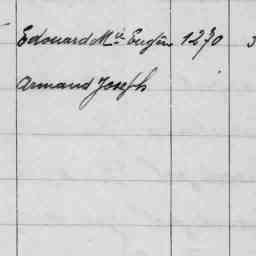 Edouard Mie Eugèn 1270 3
Armand Joseph